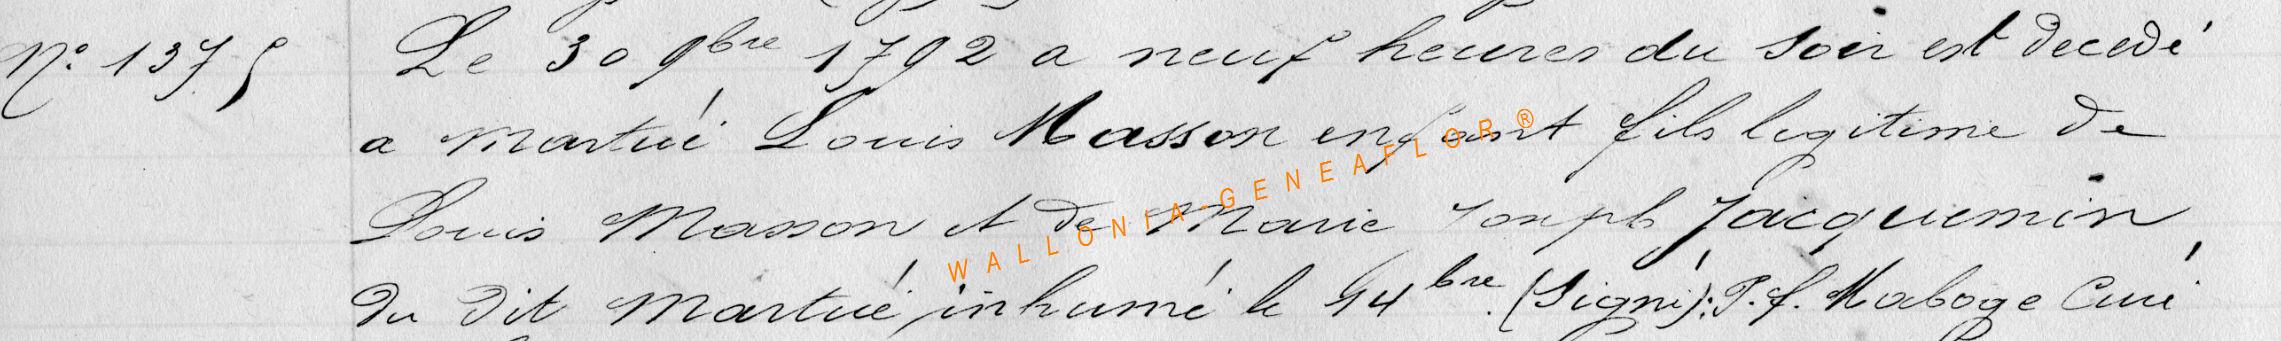 N° 1375 Le 30 9bre 1792 a neuf heures du soir est decedé
a Martué Louis Masson enfant fils legitime de
Louis Masson et de Marie Joseph Jacquemin,
du dit Martué, inhumé le bre. (Signé): P. J. Maboge Curé
WALLONIA-GENEAFLOR®